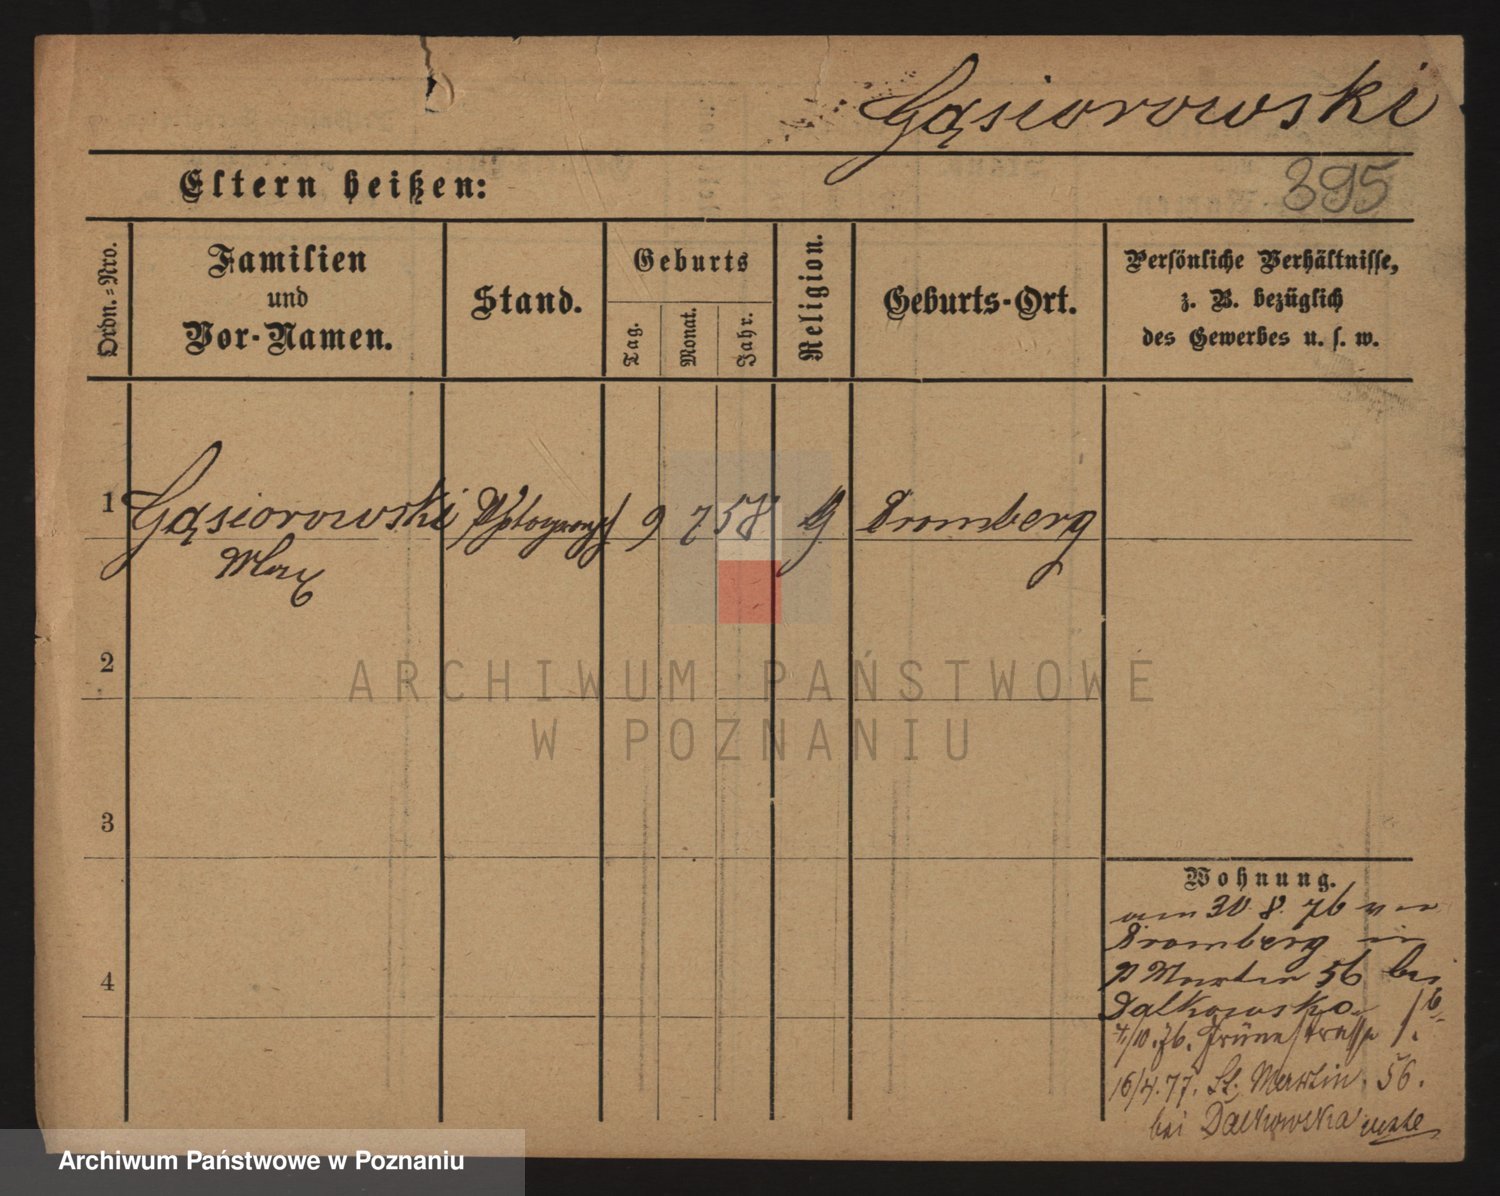 Gąsiorowski
895
Eltern heißen:
Ordn.=Nro.
Familien
und
Vor-Namen.
Stand.
Geburts
Tag.
Monat.
Jahr.
Religion.
Geburts-Ort.
Persönliche Verhältnisse,
z. B. bezüglich
des Gewerbes u. s. w.
1 Gąsiorowski 9 7 58 Bromberg
Max
2
ARCHIWUM PAŃSTWOWE
W POZNANIU
3
Wohnung.
30. 8. 76 von
Bromberg in
Martin 56 bei
4
Dalkowska
4/10.76.
16/4.77. St. Martin. 56.
bei Dalkowska
Archiwum Państwowe w Poznaniu